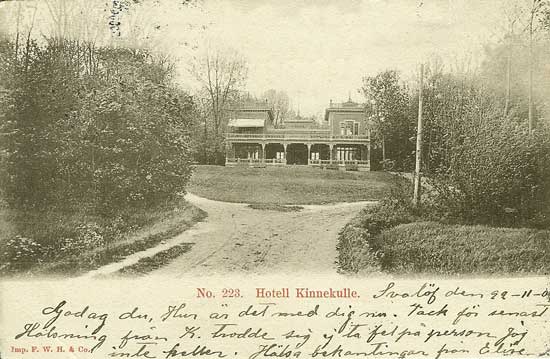 No. 223. Hotell Kinnekulle.
Svalöf den 22-11-0
Godag du, Hur är det med dig nu. Tack för senast
Hälsning från K. trodde sig ej ta fel på person jag
Imp. F. W. H. & Co. inte heller. Hälsa bekantingar från